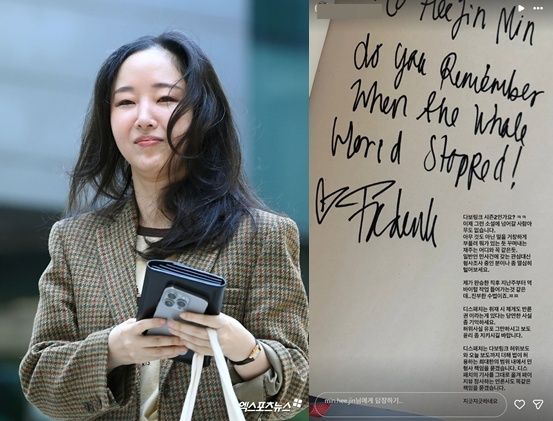 HeeJin Min
do you Remember
When the Whole
World Stopped!
다보링크 시즌2인가요? ㅋㅋ
이제 그런 소설에 넘어갈 사람아
무도 없습니다.
아무 것도 아닌 일을 거창하게
부풀려 뭐가 있는 듯 꾸며내는
재주는 어디와 꼭 같은듯.
일반인 민사건에 갖는 관심대신
형사조사 중인 분이나 좀 열심히
털어보세요.
제가 완승한 직후 지난주부터 역
바이럴 작업 들어가는것 같은
데...진부한 수법이죠.ㅉㅉ
디스패치는 취재 시 제게도 반론
권 이라는게 있다는 당연한 사실
좀 기억하세요.
허위사실 유포 그만하시고 보도
윤리 좀 지키시길 바랍니다.
디스패치는 다보링크 허위보도
와 오늘 보도까지 더해 법이 허
용하는 최대한의 범위 내에서 민
형사 책임을 묻겠습니다. 디스
패치의 기사를 그대로 옮겨 페이
지뷰 장사하는 언론사도 똑같은
책임을 묻겠습니다.
지긋지긋하네요
min.hee.jin님에게 답장하기...
엑스포츠뉴스